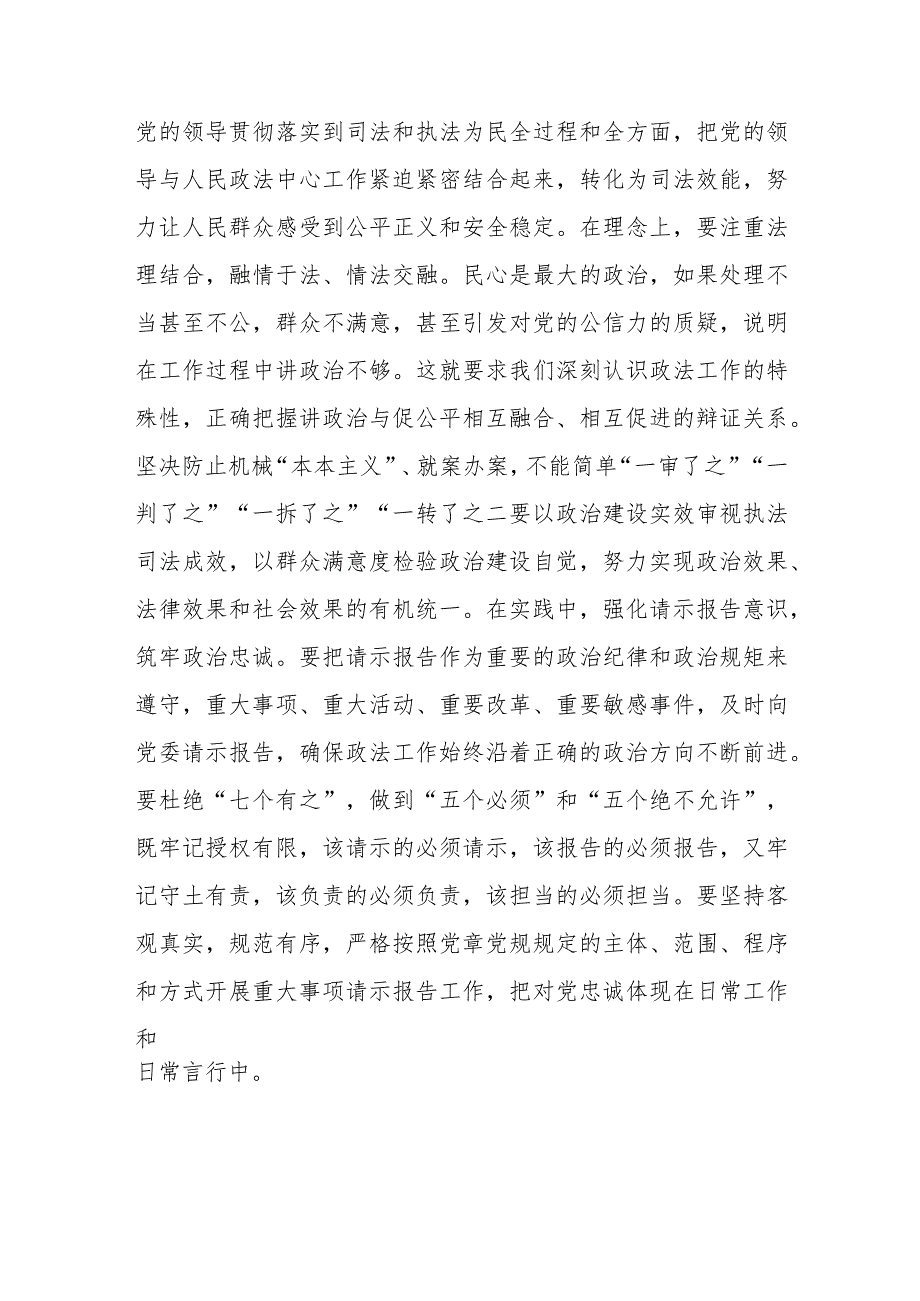 党的领导贯彻落实到司法和执法为民全过程和全方面，把党的领
导与人民政法中心工作紧迫紧密结合起来，转化为司法效能，努
力让人民群众感受到公平正义和安全稳定。在理念上，要注重法
理结合，融情于法、情法交融。民心是最大的政治，如果处理不
当甚至不公，群众不满意，甚至引发对党的公信力的质疑，说明
在工作过程中讲政治不够。这就要求我们深刻认识政法工作的特
殊性，正确把握讲政治与促公平相互融合、相互促进的辩证关系。
坚决防止机械“本本主义”、就案办案，不能简单“一审了之”“一
判了之”“一拆了之”“一转了之二要以政治建设实效审视执法
司法成效，以群众满意度检验政治建设自觉，努力实现政治效果、
法律效果和社会效果的有机统一。在实践中，强化请示报告意识，
筑牢政治忠诚。要把请示报告作为重要的政治纪律和政治规矩来
遵守，重大事项、重大活动、重要改革、重要敏感事件，及时向
党委请示报告，确保政法工作始终沿着正确的政治方向不断前进。
要杜绝“七个有之”，做到“五个必须”和“五个绝不允许”，
既牢记授权有限，该请示的必须请示，该报告的必须报告，又牢
记守土有责，该负责的必须负责，该担当的必须担当。要坚持客
观真实，规范有序，严格按照党章党规规定的主体、范围、程序
和方式开展重大事项请示报告工作，把对党忠诚体现在日常工作
和
日常言行中。